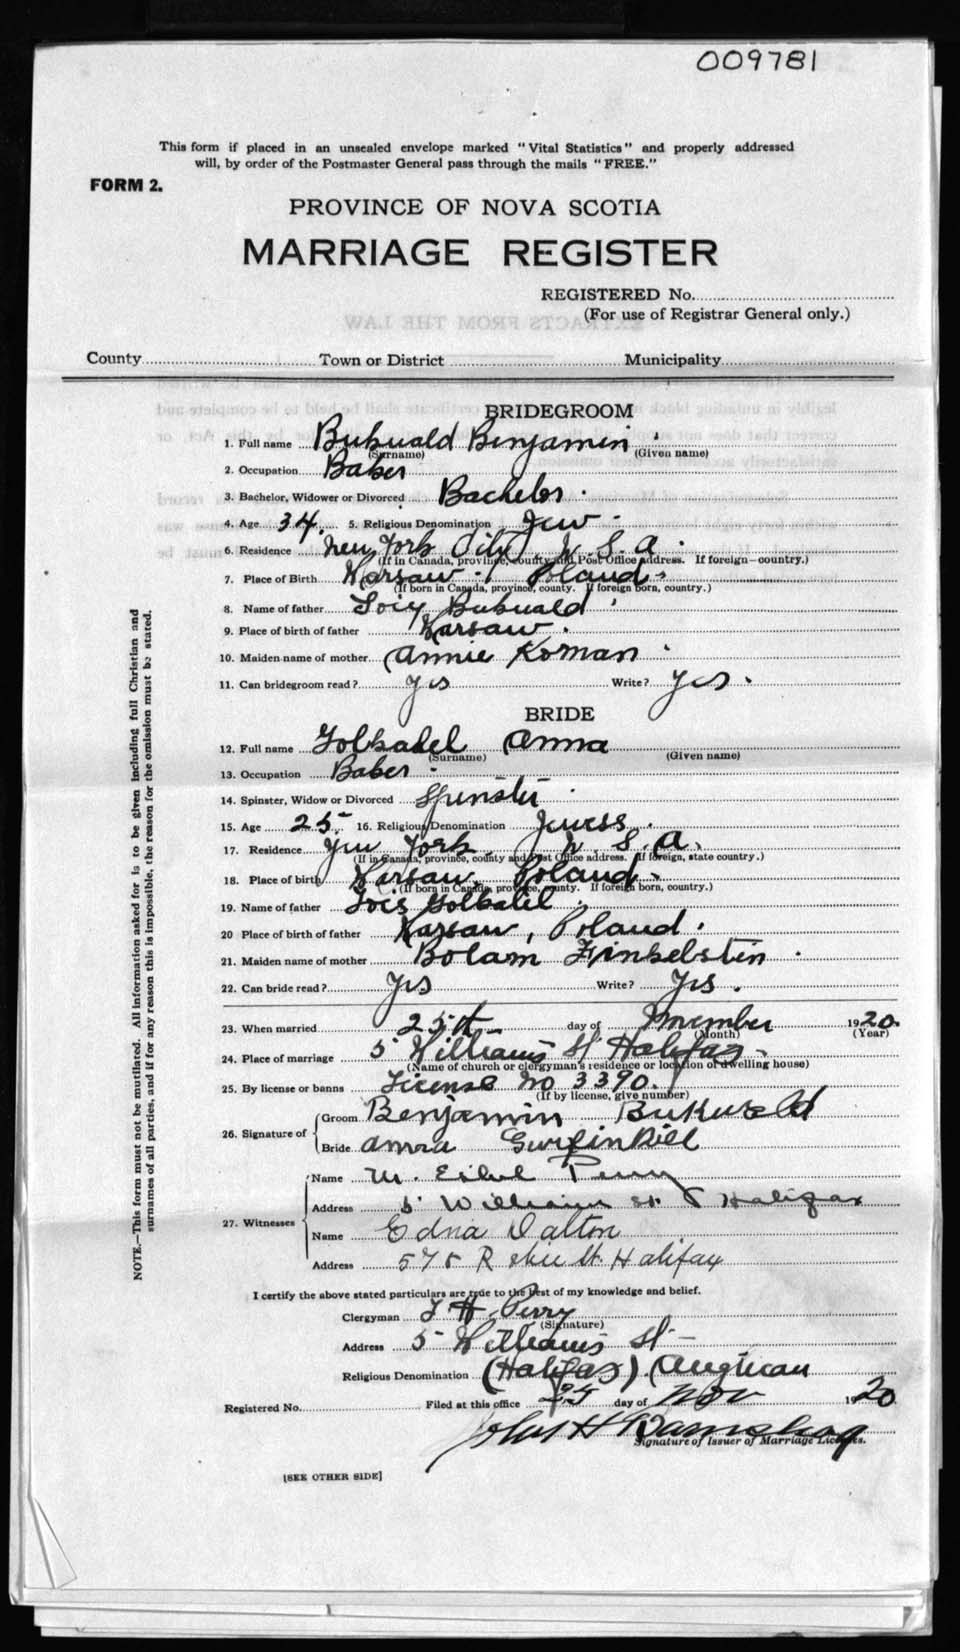 009781
This form if placed in an unsealed envelope marked "Vital Statistics" and properly addressed
will, by order of the Postmaster General pass through the mails "FREE."
FORM 2.
PROVINCE OF NOVA SCOTIA
MARRIAGE REGISTER
REGISTERED No.
(For use of Registrar General only.)
EXTRACTS FROM THE LAW
County Town or District Municipality
BRIDEGROOM
1. Full name Bukuald Benjamin
(Surname) (Given name)
2. Occupation Baker
3. Bachelor, Widower or Divorced Bachelor.
4. Age 34. 5. Religious Denomination Jew.
6. Residence New York City, U.S.A.
(If in Canada, province, county and Post Office address. If foreign—country.)
7. Place of Birth Warsaw Poland.
(If born in Canada, province, county. If foreign born, country.)
8. Name of father Bukuald
9. Place of birth of father Warsaw.
10. Maiden name of mother Annie Koman
11. Can bridegroom read? Yes Write? Yes.
BRIDE
12. Full name Anna
(Surname) (Given name)
13. Occupation Baker
14. Spinster, Widow or Divorced Spinster
15. Age 25 16. Religious Denomination Jewess.
17. Residence New York. U.S.A.
(If in Canada, province, county and Post Office address. If foreign, state country.)
18. Place of birth Warsaw, Poland.
(If born in Canada, province, county. If foreign born, country.)
19. Name of father
20 Place of birth of father Warsaw, Poland.
21. Maiden name of mother Bolam Finkelstein
22. Can bride read? Yes Write? Yes.
23. When married 25th day of November 1920.
(Month) (Year)
24. Place of marriage 5 Williams St Halifax.
(Name of church or clergyman's residence or location of dwelling house)
25. By license or banns License No 3390.
(If by license, give number)
26. Signature of
Groom Benjamin Bukuald
Bride
27. Witnesses
Name M. Ethel Perry
Address 5 Williams St. Halifax
Name Edna Dalton
Address St. Halifax
I certify the above stated particulars are true to the best of my knowledge and belief.
Clergyman Perry
(Signature)
Address 5 Williams St—
Religious Denomination (Halifax) (Anglican
Registered No. Filed at this office 25 day of Nov 1920
Signature of Issuer of Marriage Licenses.
[SEE OTHER SIDE]
NOTE.—This form must not be mutilated. All information asked for is to be given including full Christian and
surnames of all parties, and if for any reason this is impossible, the reason for the omission must be stated.